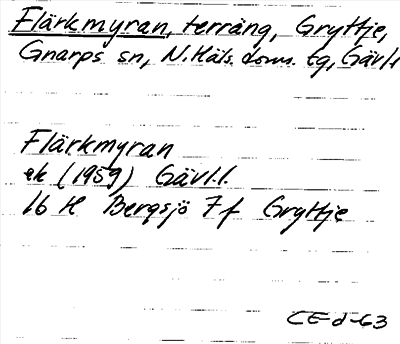 Flärkmyran, terräng, Gryttje,
Gnarps sn, N. Häls. doms. tg, Gävl.l
Flärkmyran
ek (1959) Gävl.l.
16 H Bergsjö 7 f Gryttje
CE d-63